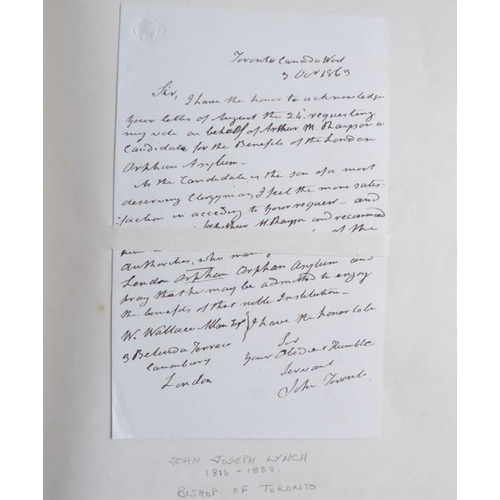 Toronto Canada West
3 Oct 1863
Sir, I have the honor to acknowledge
your letter of August the 24. requesting
my vote on behalf of Arthur M. Thompson a
Candidate for the Benefits of the London
Orphan Asylum—
As the Candidate is the son of a most
deserving Clergyman, I feel the more satis-
faction in acceding to your request— and
Arthur M. and recommend
at the
authorities, who may
London Orphan Orphan Asylum and
pray that he may be admitted to enjoy
the benefits of that noble Institution—
W. Wallace
I have the honor to be
Sir
3 Belinda Terrace
Your Obedient Humble
Canonbury
Servant
London
John Toronto
JOHN JOSEPH LYNCH
1816 - 1888.
BISHOP OF TORONTO